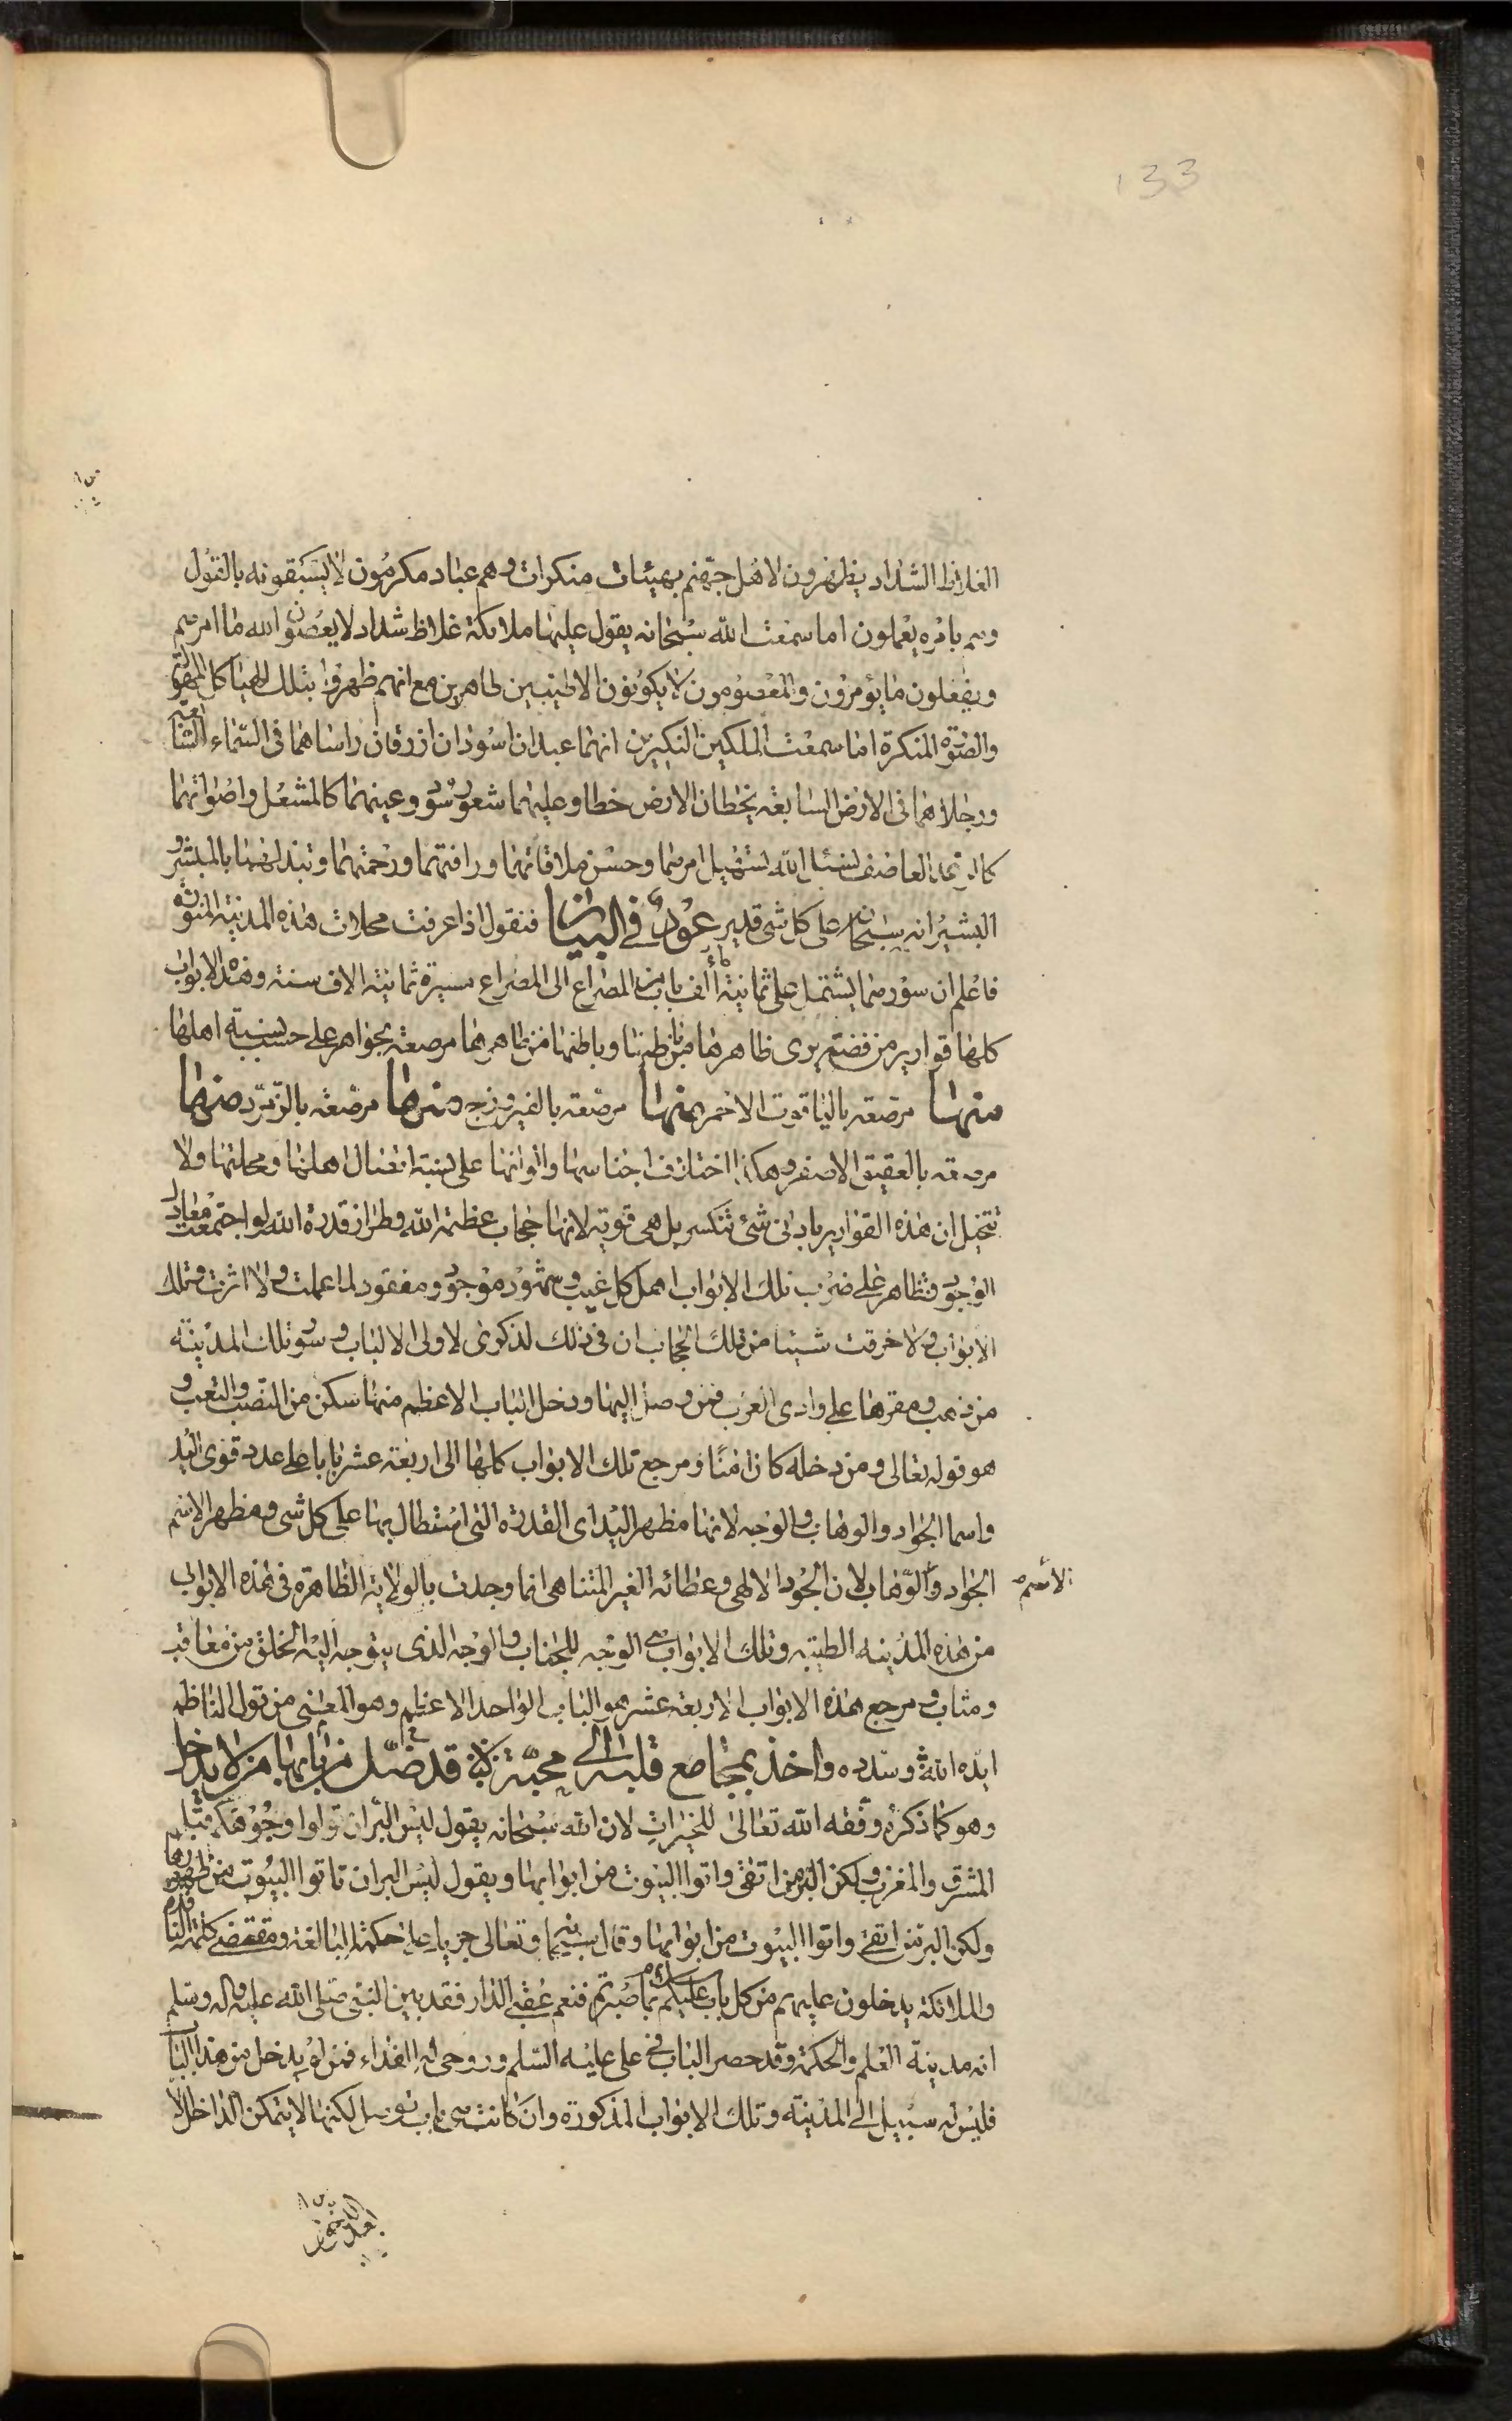 133
الغلاظ الشداد يظهرون لاهل جهنم بهيئات منكرات وهم عباد مكرمون لا يسبقونه بالقول
وهم بامره يعملون اما سمعت الله سبحانه يقول عليها ملائكة غلاظ شداد لا يعصون الله ما امرهم
ويفعلون ما يؤمرون والمعصومون لا يكونون الا طيبين طاهرين مع انهم ظهروا بتلك الهياكل المهولة
والصورة المنكرة اما سمعت الملكين النكيرين انهما عبدان اسودان ازرقان راساهما فى السماء السابعة
ورجلاهما فى الارض السابعة يخطان الارض خطا وعليهما شعور سود وعينهما كالمشعل واصواتهما
كالرعد العاصف نسئل الله تسهيل امرهما وحسن ملاقاتهما ورافتهما ورحمتهما وتبدلهما بالمبشر و
البشير انه سبحانه على كل شى قدير عود فى البيان فنقول اذا عرفت محلات هذه المدينة المنورة
فاعلم ان سورها يشتمل على ثمانية مأة ألف باب من المصراع الى المصراع مسيرة ثمانية الاف سنة وهذه الابواب
كلها قوارير من فضة يرى ظاهرها من باطنها وباطنها من ظاهرها مرصعة بجواهر على حسب نسبة اهلها
منها مرصعة بالياقوت الاحمر ومنها مرصعة بالفيروزج ومنها مرصعة بالزمرد ومنها
مرصعة بالعقيق الاصفر وهكذا اختلاف اجناسها والوانها على نسبة افعال اهلها ومحلتها ولا
تتخيل ان هذه القوارير بادنى شئ تنكسر بل هى قوية لانها حجاب عظمة الله وطراز قدرة الله لو اجتمعت معاول
الوجود وتظاهر على ضرب تلك الابواب اهل كل غيب وشهود موجود ومفقود لما عملت ولا اثرت فى تلك
الابواب ولا خرقت شيئا من تلك الحجاب ان فى ذلك لذكرى لاولى الالباب وسور تلك المدينة
من ذهب ومقرها على وادى العزب فمن وصل اليها ودخل الباب الاعظم منها سكن من النصب والتعب و
هو قوله تعالى ومن دخله كان امنًا ومرجع تلك الابواب كلها الى اربعة عشر بابا على عدد قوى اليد
واسما الجواد والوهاب والوجه لانها مظهر اليد اى القدرة التى استطال بها على كل شى ومظهر الاسم
الجواد والوهاب لان الجود الالهى وعطائه الغير المتناهى انما وجدت بالولاية الظاهرة فى هذه الابواب
الاسم
من هذه المدينه الطيبه وتلك الابواب هى الوجه للجناب والوجه الذى يتوجه اليه الخلق من معاقب
ومثاب ومرجع هذه الابواب الاربعة عشر هو الباب الواحد الاعظم وهو المعنى من قول الناظم
ايده الله وسدده واخذ بمجامع قلبه الى محبته قد ضل من لا يدخل
وهو كما ذكره وفقه الله تعالى للخيرات لان الله سبحانه يقول ليس البر ان تولوا وجوهكم قبل
المشرق والمغرب ولكن البر من اتقى واتوا البيوت من ابوابها ويقول ليس البر ان تاتوا البيوت من ظهورها
ولكن البر من اتقى واتوا البيوت من ابوابها وقال سبحانه وتعالى جريا على حكمته البالغة ومقتضى كلمته التامة
والملائكة يدخلون عليهم من كل باب سلام عليكم بما صبرتم فنعم عقبى الدار فقد بين النبى صلى الله عليه واله وسلم
انه مدينة العلم والحكمة وقد حصر الباب فى على عليه السلم وروحى له الفداء فمن لم يدخل من هذا الباب
فليس له سبيل الى المدينة وتلك الابواب المذكورة وان كانت هى باب لكنها لا يتمكن الداخل الا